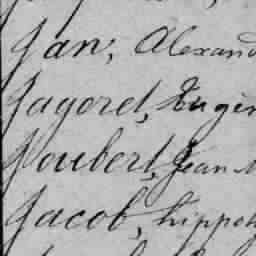 Jan, Alexand
Jagoret, Eugèn
Joubert, Jean M
Jacob, hippoly